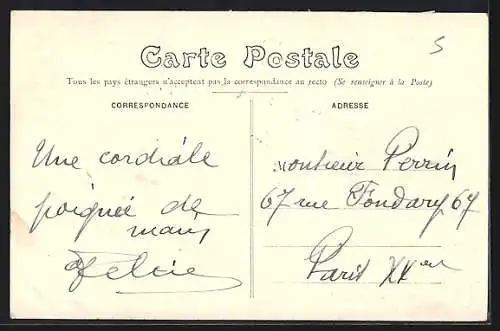 5
Carte Postale
Tous les pays étrangers n'acceptent pas la correspondance au recto (Se renseigner à la Poste)
CORRESPONDANCE
Une cordiale
poignée de
main
ADRESSE
Monsieur Perrin
67 rue Fondary 67
Paris